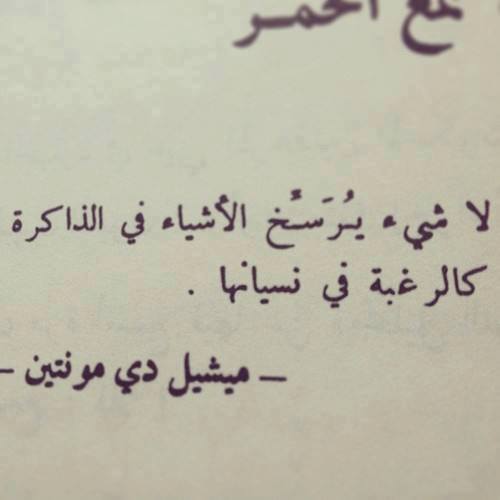 مع الخمر
لا شيء يُرَسِّخ الأشياء في الذاكرة
كالرغبة في نسيانها .
– ميشيل دي مونتين –